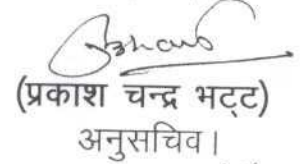 (प्रकाश चन्द्र भट्ट)
अनुसचिव।